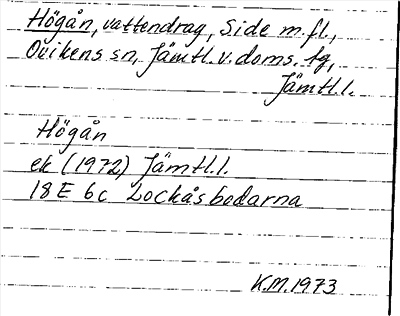 Högån, vattendrag, Side m.fl.,
Ovikens sn, Jämtl.v.doms.lg,
Jämtl.l.
Högån
ek (1972) Jämtl.l.
18E 6c Lockåsbodarna
K.M.1973